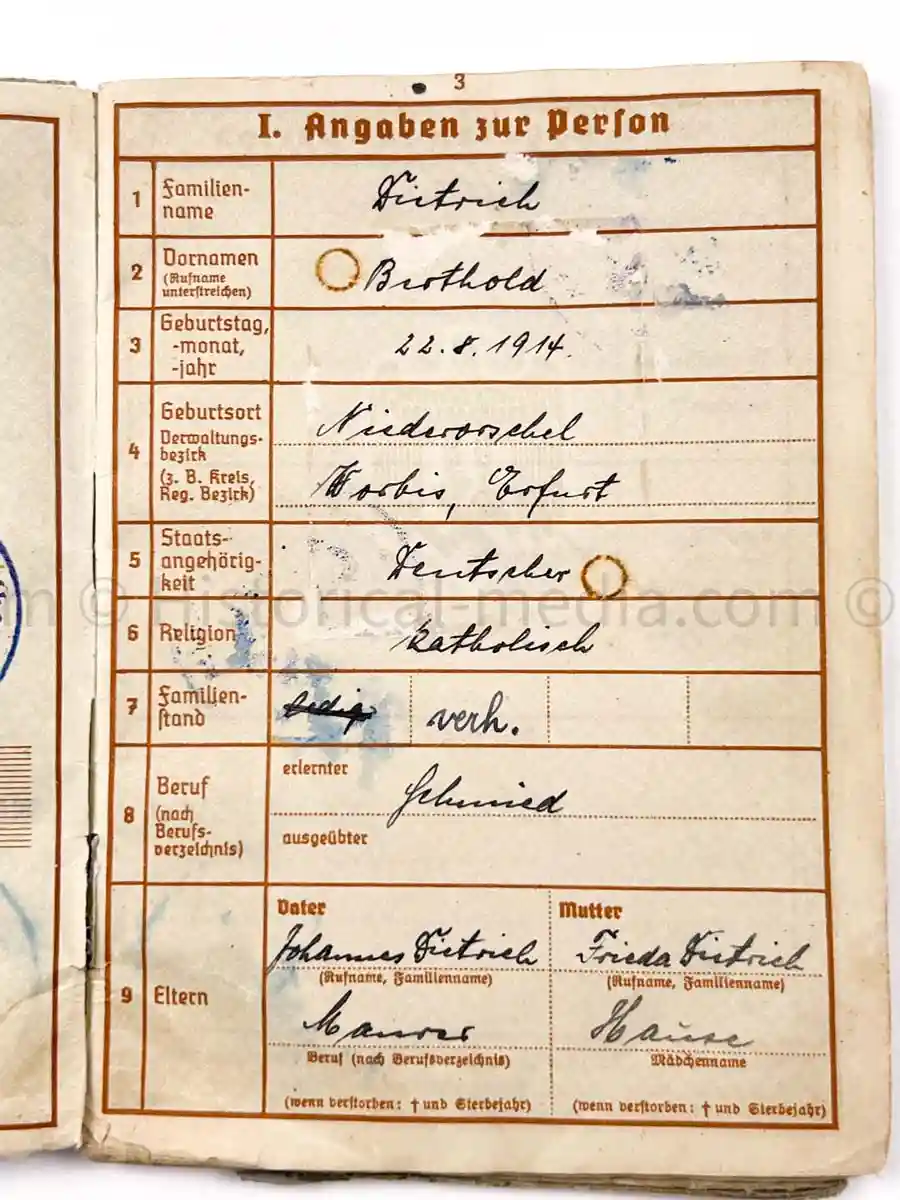 3
I. Angaben zur Person
1 Familien-
name
Dietrich
2 Vornamen
(Rufname
unterstreichen)
Berthold
3 Geburtstag,
-monat,
-jahr
22.8.1914.
4 Geburtsort
Verwaltungs-
bezirk
(z. B. Kreis,
Reg. Bezirk)
Niederorschel
Worbis, Erfurt
5 Staats-
angehörig-
keit
Deutscher
© Historical-media.com ©
6 Religion
katholisch
7 Familien-
stand
ledig verh.
8 Beruf
(nach
Berufs-
verzeichnis)
erlernter
Schmied
ausgeübter
9 Eltern
Vater
Johannes Dietrich
(Rufname, Familienname)
Maurer
Beruf (nach Berufsverzeichnis)
(wenn verstorben: † und Sterbejahr)
Mutter
Frieda Dietrich
(Rufname, Familienname)
Hause
Mädchenname
(wenn verstorben: † und Sterbejahr)